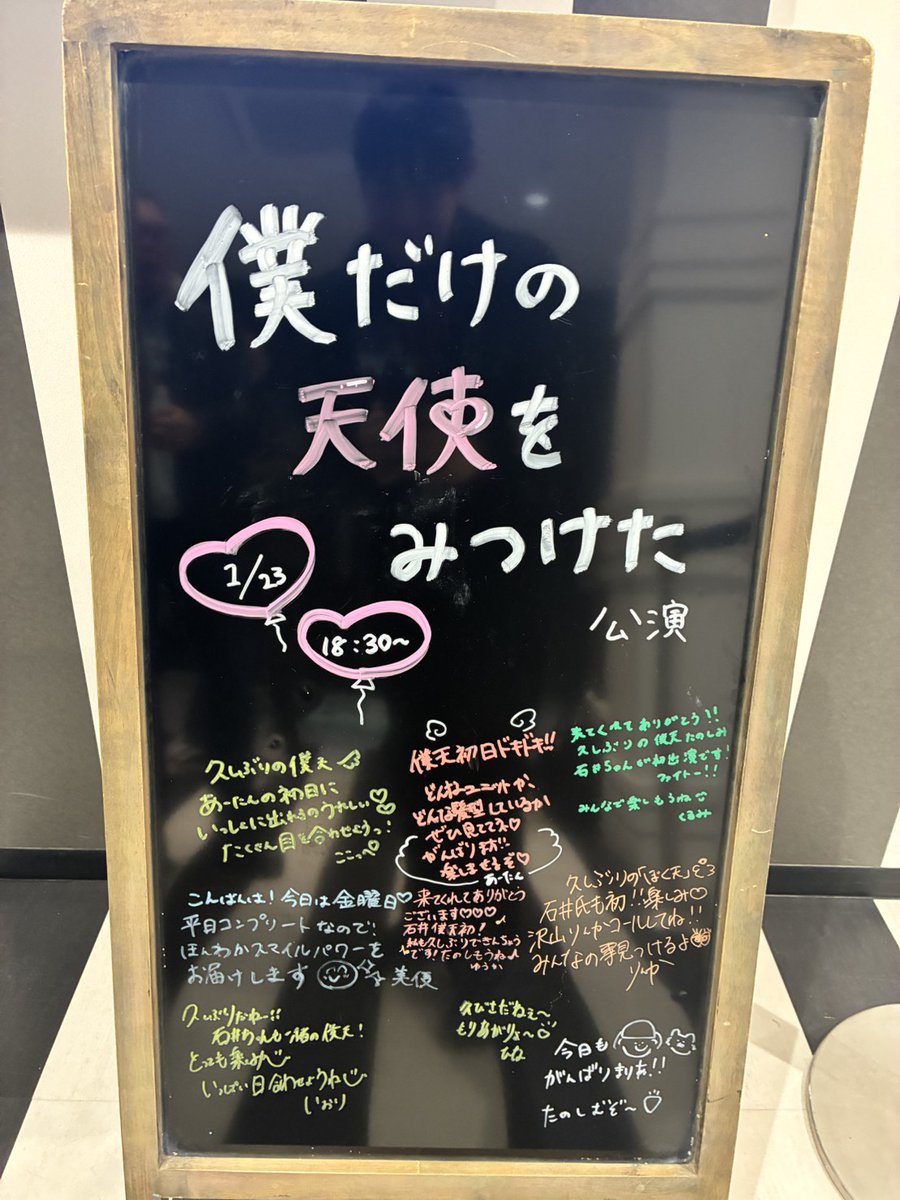 僕だけの
天使を
みつけた
公演
1/23
18:30〜
久しぶりの僕天
あーたんの初日に
いっしょに出れるのうれしい♡
たくさん目を合わせよっ!
ここっぺ
僕天初日ドキドキ!!
どんなユニットか、
どんな髪型しているか
ぜひ見ててネ♡
がんばります!!
楽しませるぞ♡
あーたん
来てくれてありがとう!!
久しぶりの僕天たのしみ
石井ちゃんが初出演です!
ファイトー!!
みんなで楽しもうね
くるみ
こんばんは!今日は金曜日♡
平日コンプリートなので!
ほんわかスマイルパワーを
お届けします
美優
来てくれてありがとう
ございます♡♡♡
石井僕天初!
私も久しぶりできんちょう
です!たのしもうね♪
ゆうか
久しぶりの「ぼく天」
石井氏も初!!楽しみ♡
沢山りゆコールしてね!!
みんなの事見つけるよ
りゆ
久しぶりだねー!!
石井ちゃんも一緒の僕天!
とっても楽しみ
いっぱい目合わせようね
いおり
久びさだねえ〜
もりあがりょ〜
ひな
今日も
がんばりまりあ!!
たのしむぞ〜